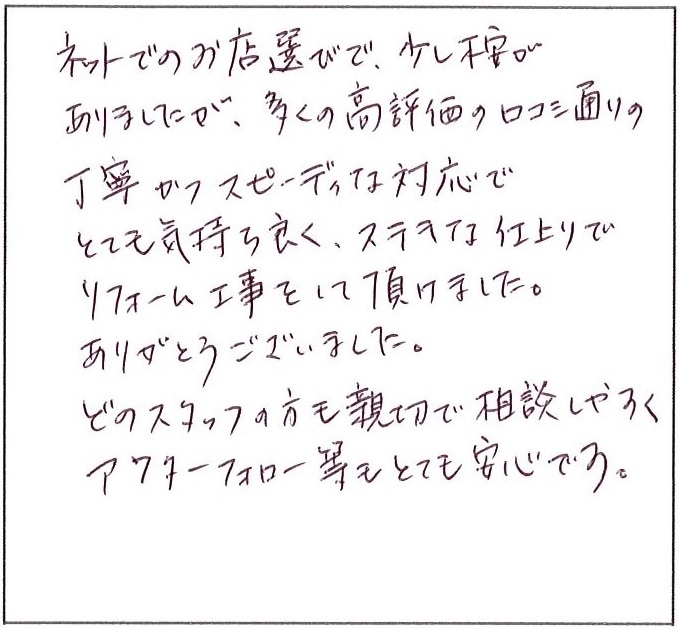 ネットでのお店選びで、少し不安が
ありましたが、多くの高評価の口コミ通りの
丁寧かつスピーディな対応で
とても気持ち良く、ステキな仕上りで
リフォーム工事をして頂けました。
ありがとうございました。
どのスタッフの方も親切で相談しやすく
アフターフォロー等もとても安心です。